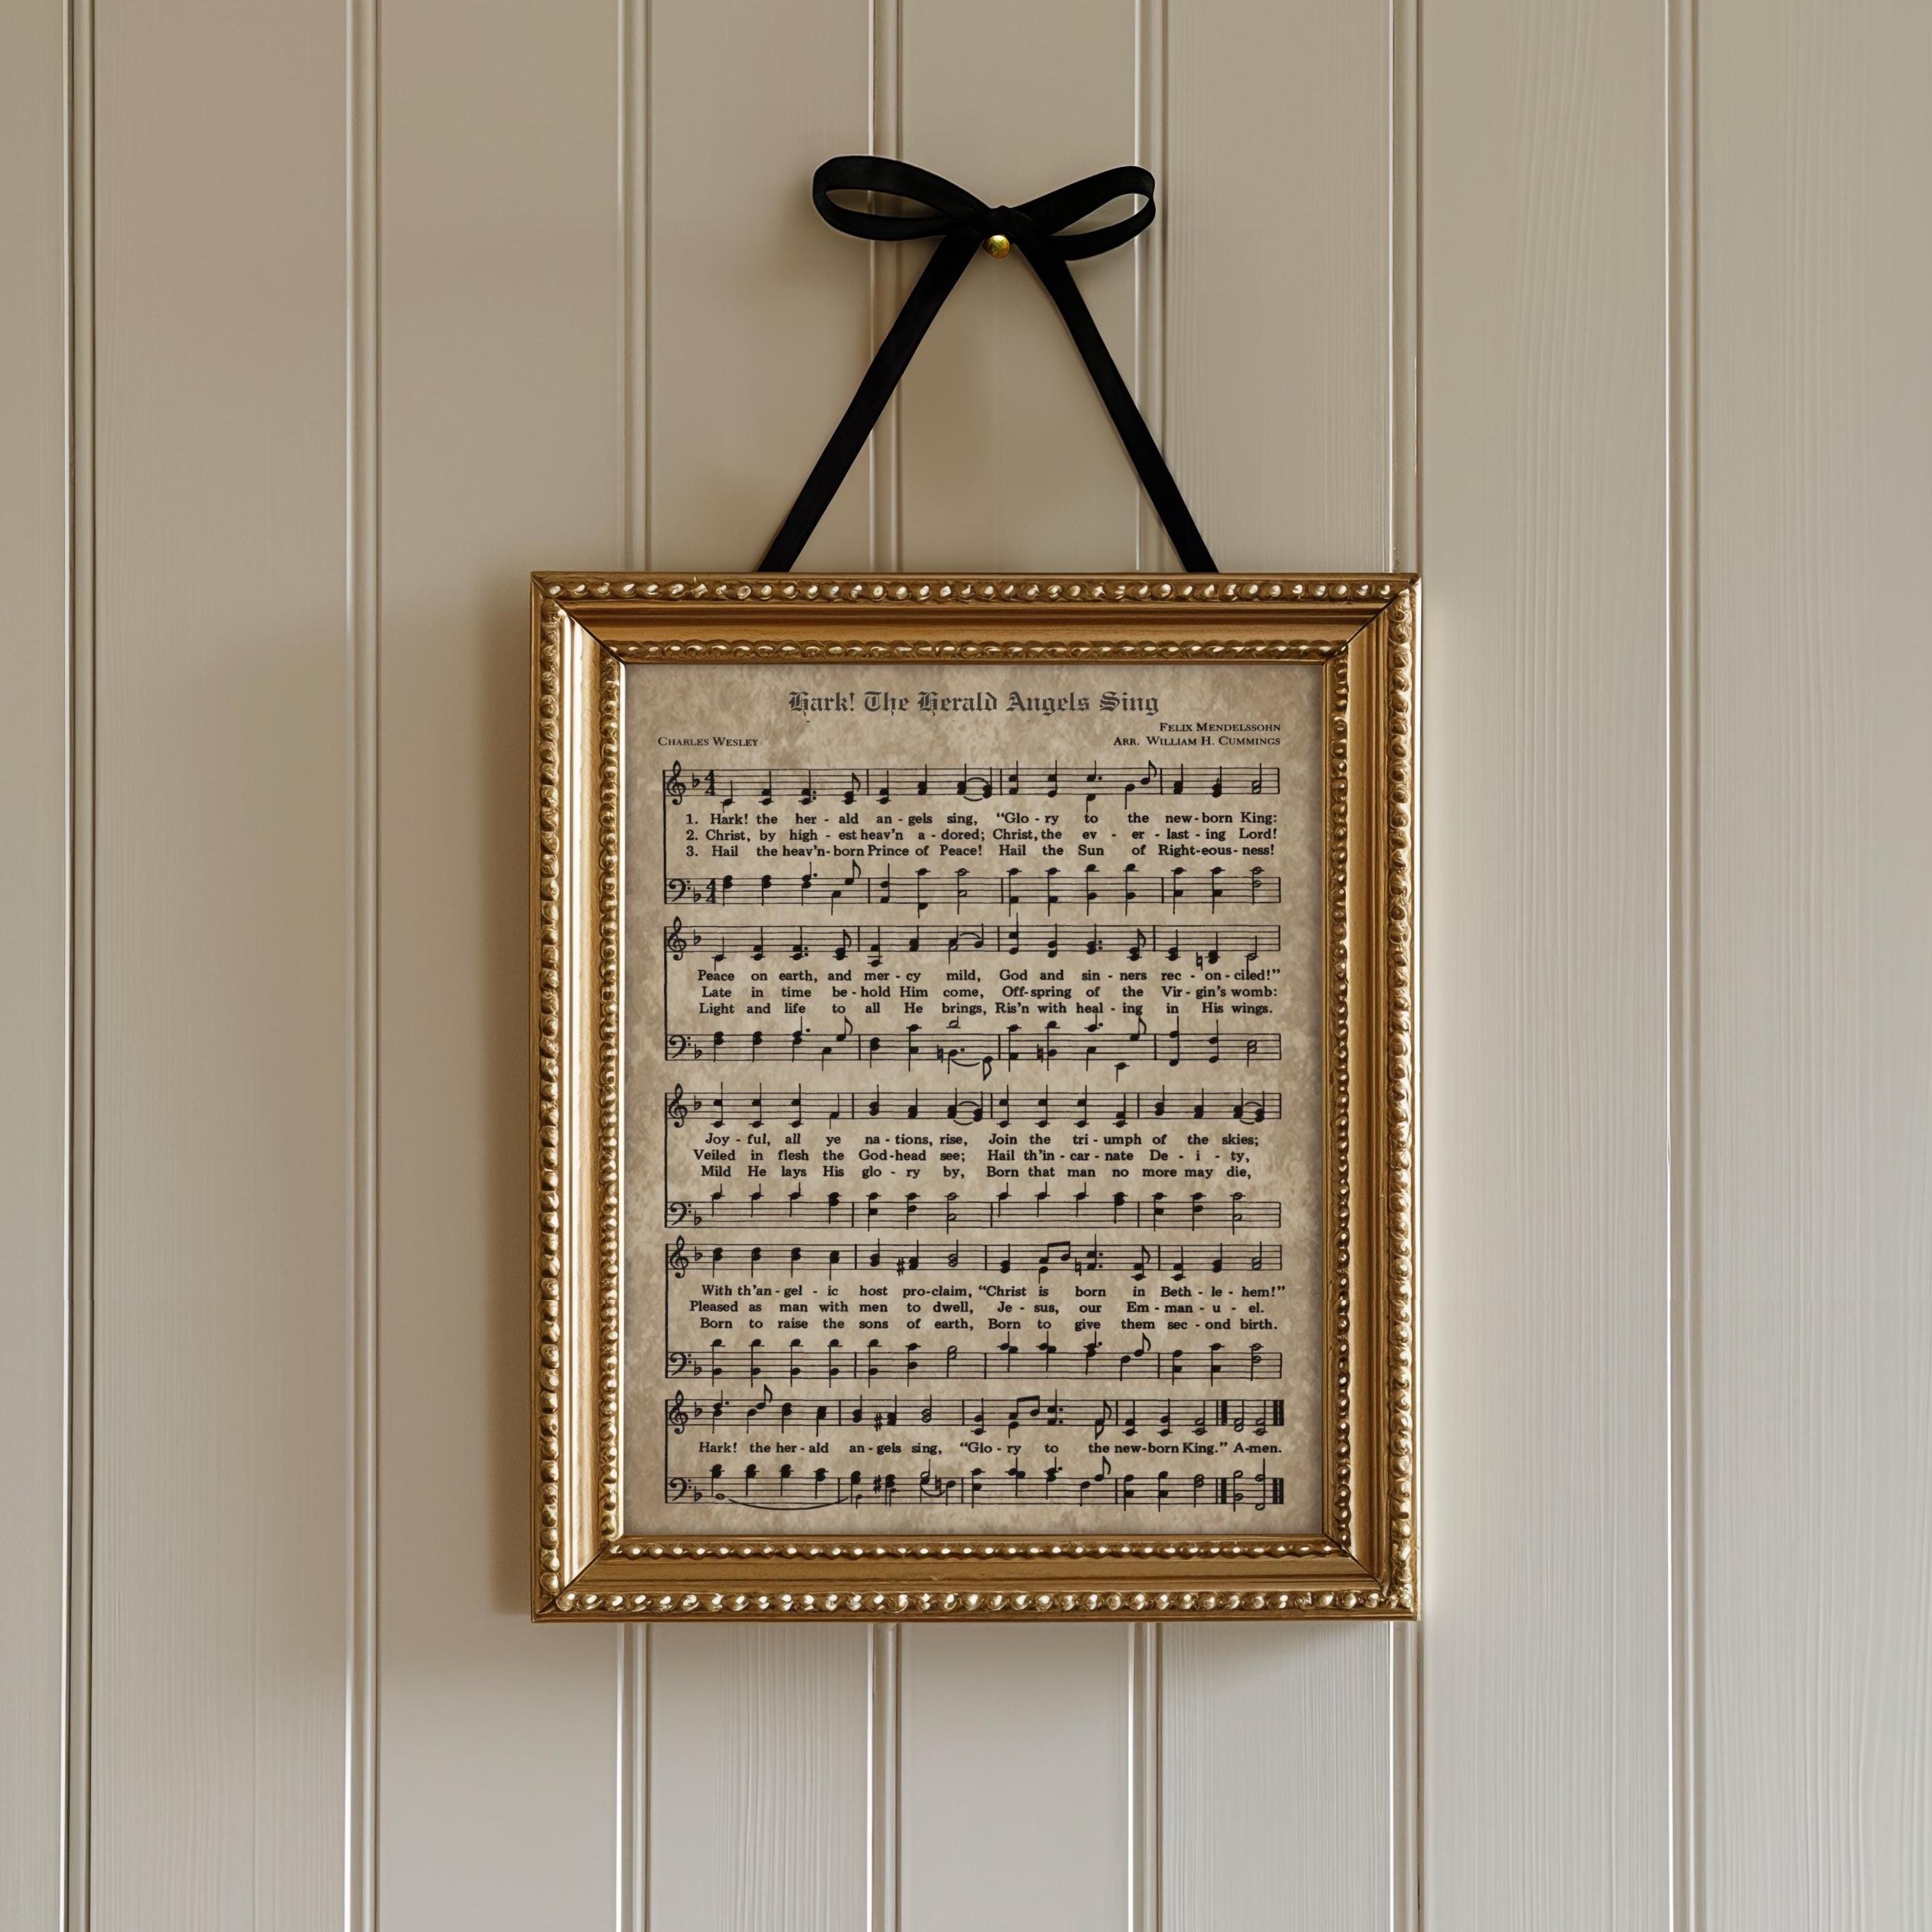 Hark! The Herald Angels Sing
Felix Mendelssohn
Charles Wesley
Arr. William H. Cummings
1. Hark! the her - ald an - gels sing, “Glo - ry to the new - born King:
2. Christ, by high - est heav’n a - dored; Christ, the ev - er - last - ing Lord!
3. Hail the heav’n - born Prince of Peace! Hail the Sun of Right - eous - ness!
Peace on earth, and mer - cy mild, God and sin - ners rec - on - ciled!”
Late in time be - hold Him come, Off - spring of the Vir - gin’s womb:
Light and life to all He brings, Ris’n with heal - ing in His wings.
Joy - ful, all ye na - tions, rise, Join the tri - umph of the skies;
Veiled in flesh the God - head see; Hail th’in - car - nate De - i - ty,
Mild He lays His glo - ry by, Born that man no more may die,
With th’an - gel - ic host pro - claim, “Christ is born in Beth - le - hem!”
Pleased as man with men to dwell, Je - sus, our Em - man - u - el.
Born to raise the sons of earth, Born to give them sec - ond birth.
Hark! the her - ald an - gels sing, “Glo - ry to the new - born King.” A - men.